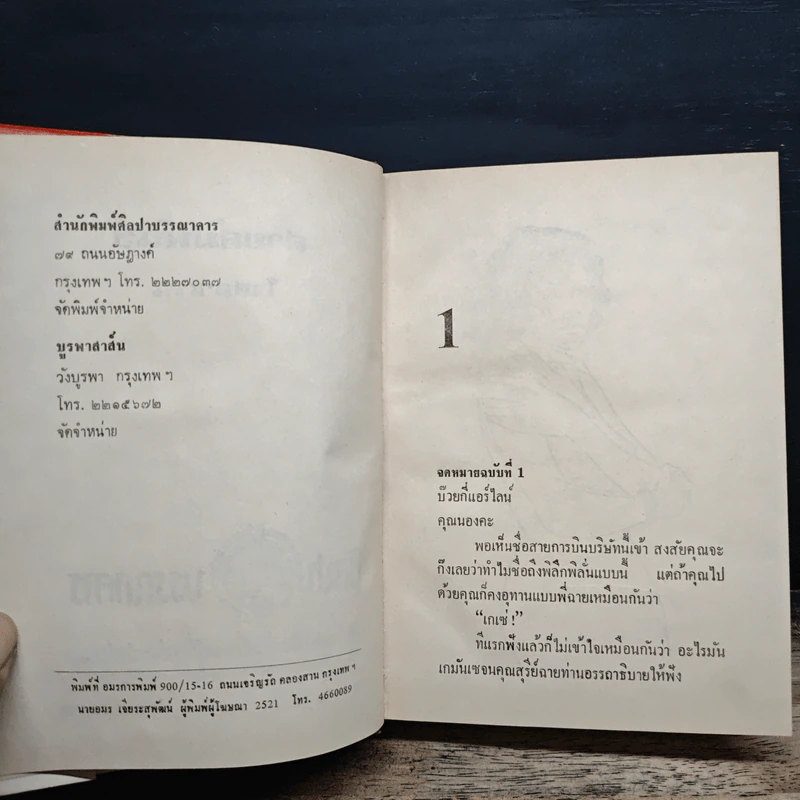 สำนักพิมพ์ศิลปาบรรณาคาร
๗๙ ถนนอัษฎางค์
กรุงเทพฯ โทร. ๒๒๒๗๐๓๗
จัดพิมพ์จำหน่าย
บูรพาสาส์น
วังบูรพา กรุงเทพฯ
โทร. ๒๒๑๕๖๗๒
จัดจำหน่าย
พิมพ์ที่ อมรการพิมพ์ 900/15-16 ถนนเจริญรัถ คลองสาน กรุงเทพฯ
นายอมร เจียระสุพัฒน์ ผู้พิมพ์ผู้โฆษณา 2521 โทร. 4660089
1
จดหมายฉบับที่ 1
บ๊วยกี่แอร์ไลน์
คุณนองคะ
พอเห็นชื่อสายการบินบริษัทนี้เข้า สงสัยคุณจะ
ก๊งเลยว่าทำไมชื่อถึงพิลึกพิลั่นแบบนี้ แต่ถ้าคุณไป
ด้วยคุณก็คงอุทานแบบพี่ฉายเหมือนกันว่า
“เกเซ่!”
ทีแรกฟังแล้วก็ไม่เข้าใจเหมือนกันว่า อะไรมัน
เกมันเซจนคุณสุรีย์ฉายท่านอรรถาธิบายให้ฟัง